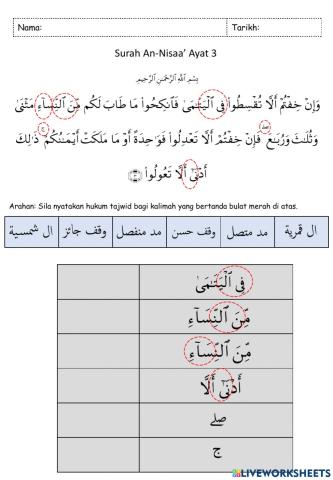 Nama:
Tarikh:
Surah An-Nisaa' Ayat 3
بِسْمِ اللَّهِ الرَّحْمَٰنِ الرَّحِيمِ
وَإِنْ خِفْتُمْ أَلَّا تُقْسِطُوا۟ فِى ٱلْيَتَـٰمَىٰ فَٱنكِحُوا۟ مَا طَابَ لَكُم مِّنَ ٱلنِّسَآءِ مَثْنَىٰ
وَثُلَـٰثَ وَرُبَـٰعَ ۖ فَإِنْ خِفْتُمْ أَلَّا تَعْدِلُوا۟ فَوَٰحِدَةً أَوْ مَا مَلَكَتْ أَيْمَـٰنُكُمْ ۚ ذَٰلِكَ
أَدْنَىٰٓ أَلَّا تَعُولُوا۟ ۝٣
Arahan: Sila nyatakan hukum tajwid bagi kalimah yang bertanda bulat merah di atas.
ال شمسية وقف جائز مد منفصل وقف حسن مد متصل ال قمرية
فِى ٱلْيَتَـٰمَىٰ
مِّنَ ٱلنِّسَآءِ
مِّنَ ٱلنِّسَآءِ
أَدْنَىٰٓ أَلَّا
صلے
ج
LIVEWORKSHEETS